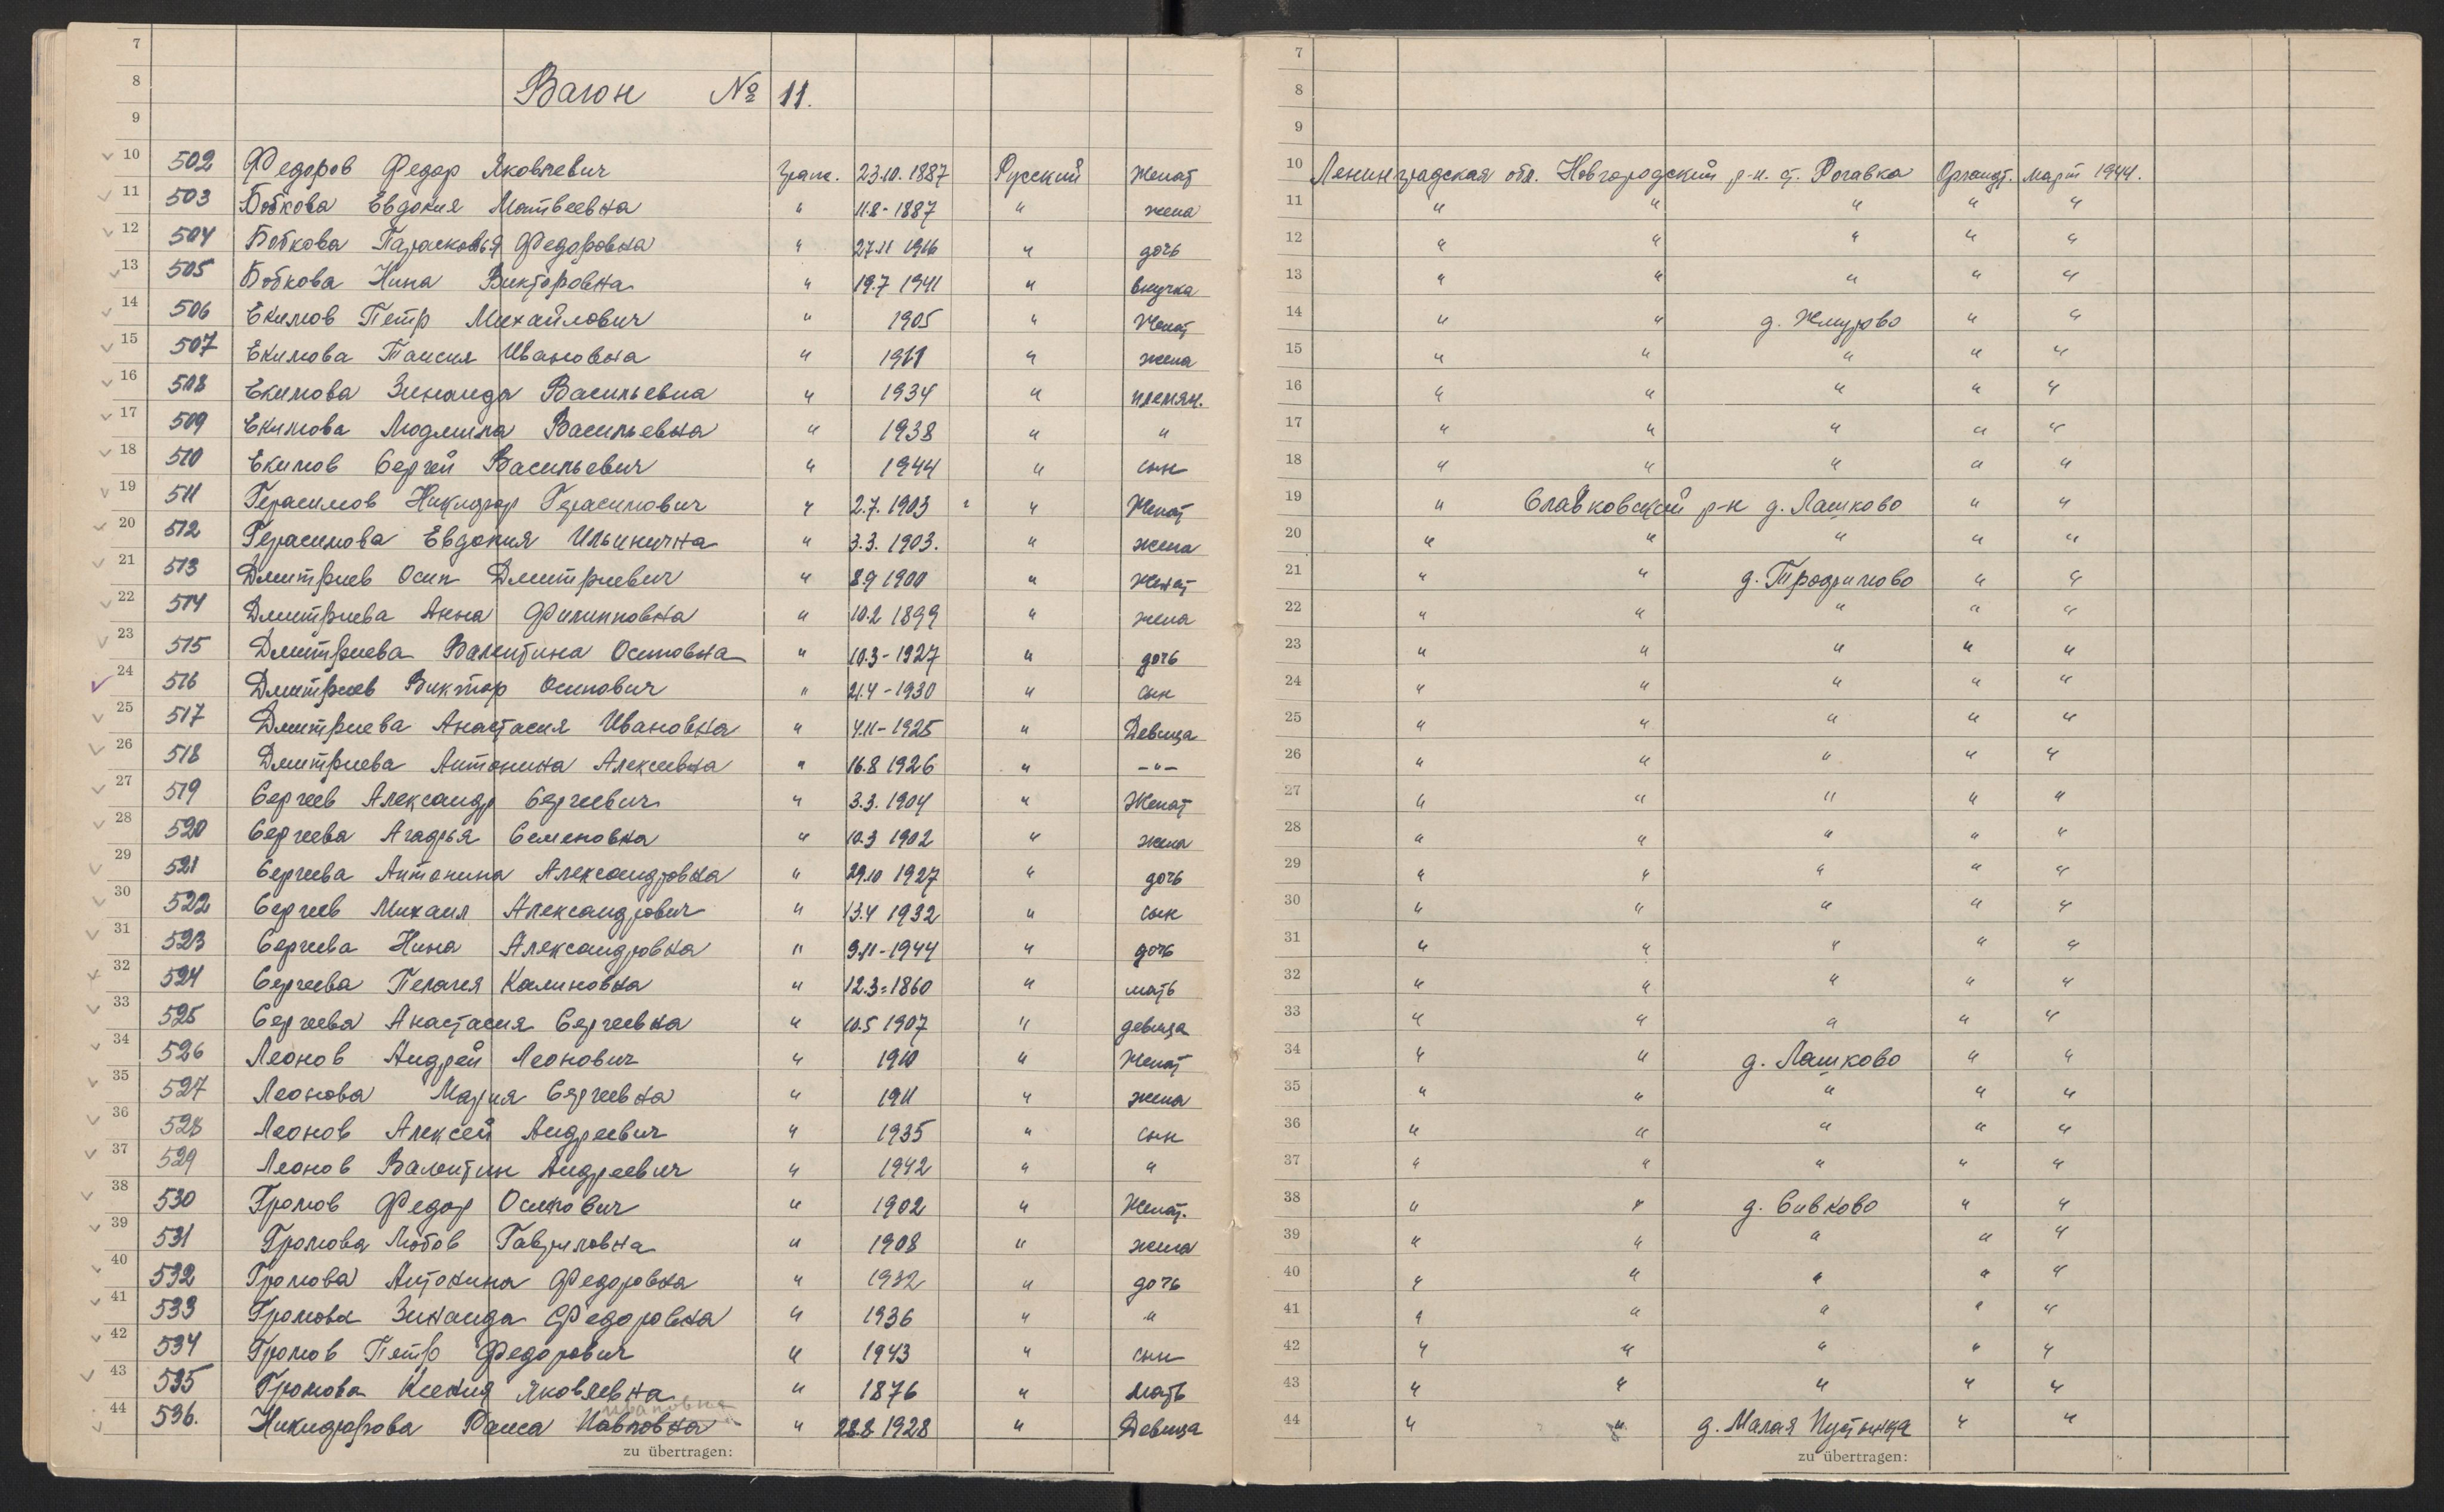 7 7
8 Вагон № 11. 8
9 9
10 502 Федоров Федор Яковлевич гран. 23.10.1887 Русский женат 10 Ленинградская обл. Новгородский р-н. ст. Рогавка март 1944.
11 503 Бобкова Евдокия Матвеевна " 11.8-1887 " жена 11 " " " " "
12 504 Бобкова Парасковья Федоровна " 27.11 1916 " дочь 12 " " " " "
13 505 Бобкова Нина Викторовна " 19.7 1941 " внучка 13 " " " " "
14 506 Екимов Петр Михайлович " 1905 " Женат 14 " " д. Жмурово " "
15 507 Екимова Таисия Ивановна " 1911 " жена 15 " " " " "
16 508 Екимова Зинаида Васильевна " 1934 " племян. 16 " " " " "
17 509 Екимова Людмила Васильевна " 1938 " " 17 " " " " "
18 510 Екимов Сергей Васильевич " 1944 " сын 18 " " " " "
19 511 Герасимов Никифор Герасимович " 2.7.1903 " " Женат 19 " Славковский р-н д. Лашково " "
20 512 Герасимова Евдокия Ильинична " 3.3.1903. " жена 20 " " " " "
21 513 Дмитриев Осип Дмитриевич " 8.9 1900 " Женат 21 " " д. Трофимово " "
22 514 Дмитриева Анна Филипповна " 10.2 1899 " жена 22 " " " " "
23 515 Дмитриева Валентина Осиповна " 10.3-1927 " дочь 23 " " " " "
24 516 Дмитриев Виктор Осипович " 21.4-1930 " сын 24 " " " " "
25 517 Дмитриева Анастасия Ивановна " 4.11-1925 " Девица 25 " " " " "
26 518 Дмитриева Антонина Алексеевна " 16.8 1926 " -"- 26 " " " " "
27 519 Сергеев Александр Сергеевич " 3.3.1904 " Женат 27 " " " " "
28 520 Сергеева Агафья Семеновна " 10.3 1902 " жена 28 " " " " "
29 521 Сергеева Антонина Александровна " 29.10 1927 " дочь 29 " " " " "
30 522 Сергеев Михаил Александрович " 13.4 1932 " сын 30 " " " " "
31 523 Сергеева Нина Александровна " 9.11-1944 " дочь 31 " " " " "
32 524 Сергеева Пелагея Калиновна " 12.3-1860 " мать 32 " " " " "
33 525 Сергеева Анастасия Сергеевна " 10.5 1907 " девица 33 " " " " "
34 526 Леонов Андрей Леонович " 1910 " Женат 34 " " д. Лашково " "
35 527 Леонова Мария Сергеевна " 1911 " жена 35 " " " " "
36 528 Леонов Алексей Андреевич " 1935 " сын 36 " " " " "
37 529 Леонов Валентин Андреевич " 1942 " " 37 " " " " "
38 530 Громов Федор Осипович " 1902 " Женат. 38 " " д. Сивково " "
39 531 Громова Любов Гавриловна " 1908 " жена 39 " " " " "
40 532 Громова Антонина Федоровна " 1932 " дочь 40 " " " " "
41 533 Громова Зинаида Федоровна " 1936 " " 41 " " " " "
42 534 Громов Петр Федорович " 1943 " сын 42 " " " " "
43 535 Громова Ксения Яковлевна " 1876 " мать 43 " " " " "
ивановна
44 536. Никифорова Раиса Павловна " 28.8 1928 " Девица 44 " " д. Малая Пустынка " "
zu übertragen: zu übertragen: